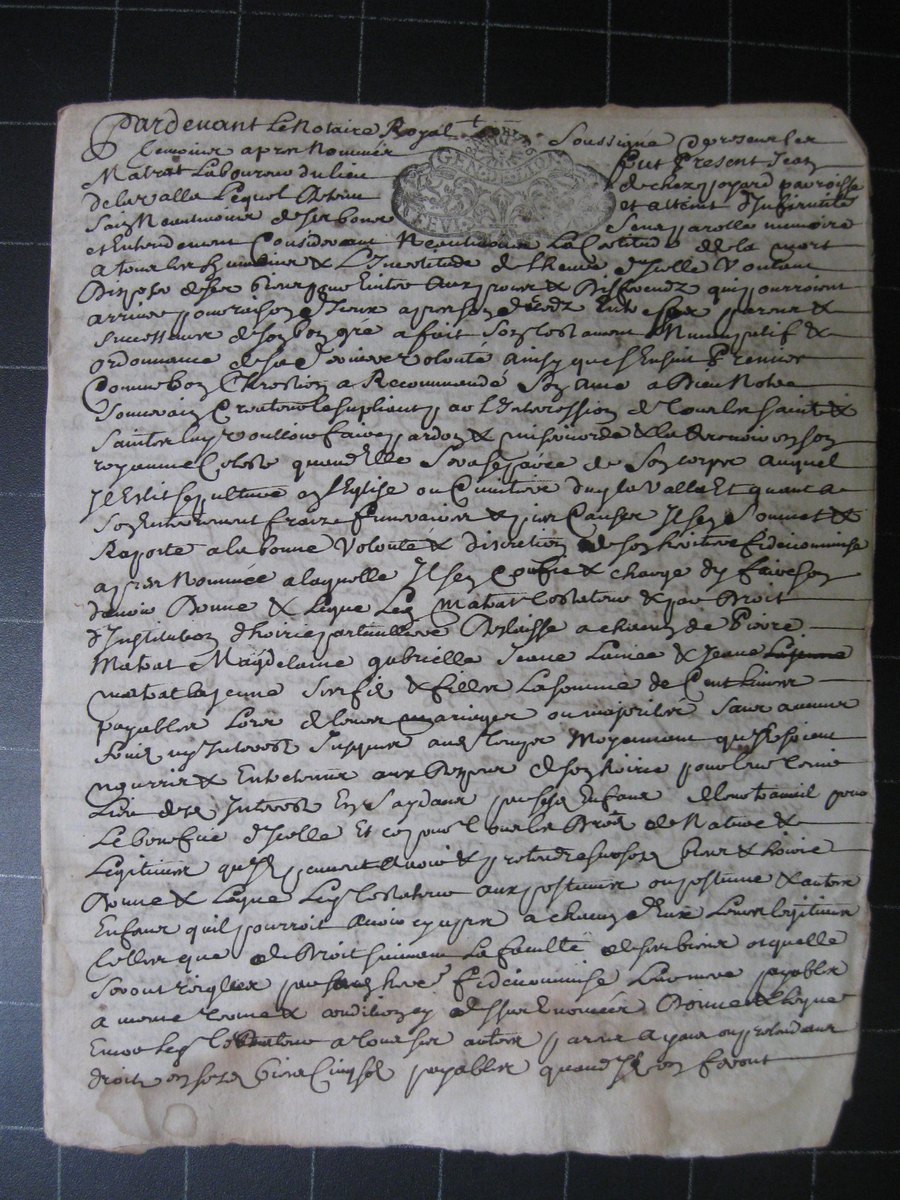 Pardevant Le Notaire Royal Soussigné Et presens les
temoins apres Nommés fut Present Jean
Matrat Laboureur du lieu de chez joyard parroisse
de la valla Lequel Estant et atteint d'Infirmité
Sain Neantmoins de ses bons Sens parolle memoire
et Entendement Considerant Neantmoins La Certitude de la mort
a tous les humains & L'Incertitude de l'heure d'Icelle Voulant
Disposer de ses biens pour Eviter aux proces & Differendz qui pourroient
arriver pour raison d'Iceux apres son decedz Entre ses parens &
successeurs de son bon gré a fait son testament Nuncupatif &
ordonnance de sa derniere volonté ainsy que s'Ensuit Premier
Comme bon Chrestien a Recommandé son ame a Dieu Notre
Souverain Createur le supliant par L'Intercession de tous les saints &
saintes luy vouloir faire pardon & misericorde & la recevoir en son
royaume Celeste quand Elle Sera separée de Son corps auquel
Il Eslit sepulture en l'Eglise ou Cimitiere dud la Valla Et quant a
son Enterrement fraix funeraires & pies Causes Il s'en Soumet &
Raporte a la bonne Volonté & discretion de son heritiere fideicommise
apres Nommée a laquelle Il s'en Confie & charge d'y faire son
devoir Donne & Legue Led Matrat testateur & par Droit
d'Institution d'hoirie particuliere Delaisse a chacun de Pierre
Matrat Magdelaine gabrielle Jeane Lainée & Jeane
matrat la jeune Ses fils & filles La somme de Cent livres
payables Lors de leurs mariages ou majorités sans aucune
Interest Jusques aud temps Moyennant qu'Ils soient
nourris & Entretenus aux Despens de son hoirie pour leur tenir
Lieu desd Interest En s'aydant par sesd Enfans de leur travail pour
Le benefice d'Icelle Et ce pour tous les Droits de Nature &
Legitimes qu'Ils peuvent avoir & pretendre sur ses biens & hoirie
Donne & Legue Led testateur aux postumes ou postume & autres
Enfans qu'il pourroit avoir cy apres a chacun d'Eux Leurs legitimes
telles que de Droit suivant La faculté de ses biens esquelles
seront reiglées par sad fideicommise payables
a meme terme & condition que dessus Donne & Legue
Encor Led Testateur a tous ses autres parens ayans ou pretendans
droit en sesd biens Cinq sols payables quand Ils en feront